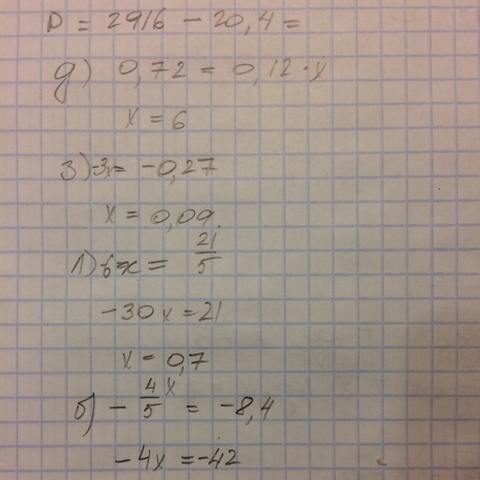 D = 2916 - 20,4 =
д) 0,72 = 0,12 · x
x = 6
з) -3x = -0,27
x = 0,09
л) -6x = 21/5
-30x = 21
x = 0,7
б) - 4/5 x = -8,4
-4x = -42